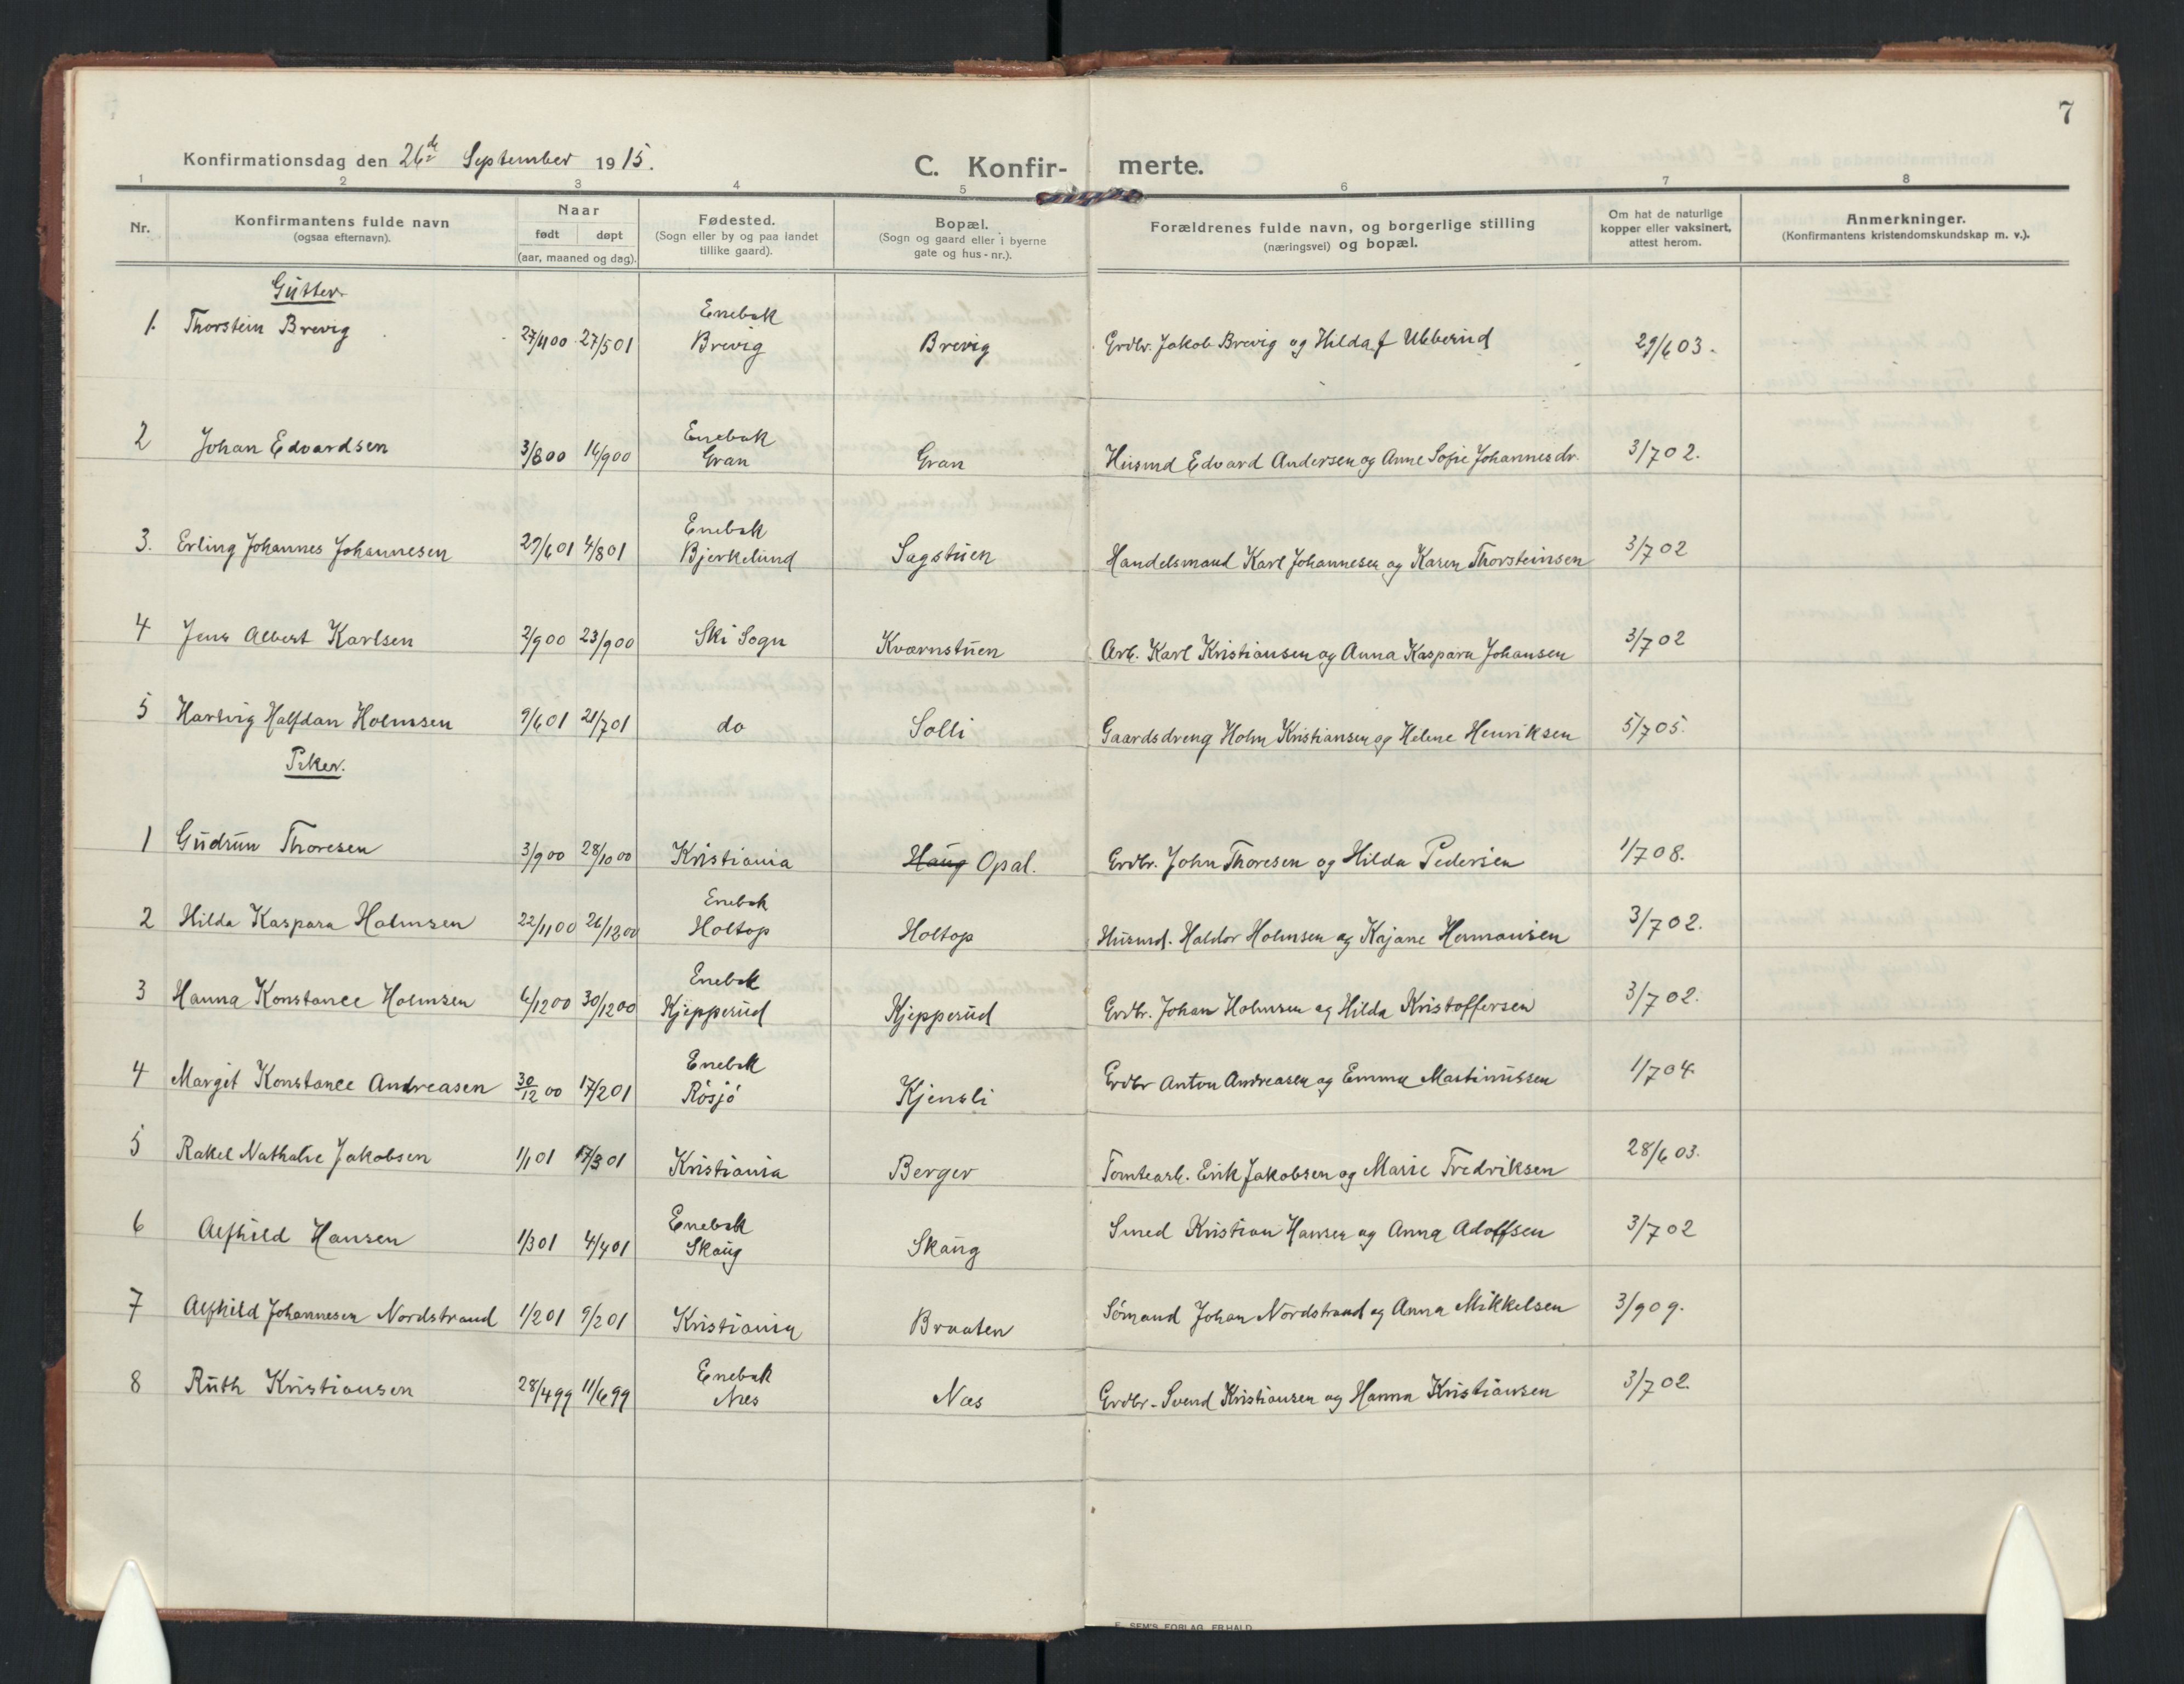 7
Konfirmationsdag den 26de September 1915.
C. Konfir- merte.
1 2 3 4 5 6 7 8
Nr. Konfirmantens fulde navn (ogsaa efternavn). Naar født døpt (aar, maaned og dag). Fødested. (Sogn eller by og paa landet tillike gaard). Bopæl. (Sogn og gaard eller i byerne gate og hus-nr.). Forældrenes fulde navn, og borgerlige stilling (næringsvei) og bopæl. Om hat de naturlige kopper eller vaksinert, attest herom. Anmerkninger. (Konfirmantens kristendomskundskap m. v.).
Gutter
1. Thorstein Brevig 27/11 00 27/5 01 Enebak Brevig Brevig Grdbr. Jakob Brevig og Hilda f Ubberud 29/6 03.
2 Johan Edvardsen 3/8 00 16/9 00 Enebak Gran Gran Husmd Edvard Andersen og Anne Sofie Johannesdr. 3/7 02.
3. Erling Johannes Johannesen 27/6 01 4/8 01 Enebak Bjerkelund Sagstuen Handelsmand Karl Johannesen og Karen Thorsteinsen 3/7 02
4 Jens Albert Karlsen 2/9 00 23/9 00 Ski Sogn Kvernstuen Arb. Karl Kristiansen og Anna Kaspara Johansen 3/7 02
5 Hartvig Halfdan Holmsen 9/6 01 21/7 01 do Solli Gaardsdreng Holm Kristiansen og Helene Henriksen 5/7 05.
Piker.
1 Gudrun Thoresen 3/9 00 28/10 00 Kristiania Haug Opal. Grdbr. John Thoresen og Hilda Pedersen 1/7 08.
2 Hilda Kaspara Holmsen 22/11 00 26/12 00 Enebak Holtop Holtop Husmd. Haldor Holmsen og Kajane Hermansen 3/7 02.
3 Hanna Konstance Holmsen 6/12 00 30/12 00 Enebak Kjepperud Kjepperud Grdbr. Johan Holmsen og Hilda Kristoffersen 3/7 02.
4 Margit Konstance Andreasen 30/12 00 17/2 01 Enebak Rösjö Kjensli Grdbr Anton Andreasen og Emma Martinussen 1/7 04.
5 Rakel Nathalie Jakobsen 1/1 01 17/3 01 Kristiania Berger Tomtearb. Erik Jakobsen og Marie Fredriksen 28/6 03.
6 Alfhild Hansen 1/3 01 4/4 01 Enebak Skaug Skaug Smed Kristian Hansen og Anna Adolfsen 3/7 02
7 Alfhild Johannesen Nordstrand 1/2 01 9/2 01 Kristiania Braaten Sömand Johan Nordstrand og Anna Mikkelsen 3/9 09.
8 Ruth Kristiansen 28/4 99 11/6 99 Enebak Næs Næs Grdbr. Svend Kristiansen og Hanna Kristiansen 3/7 02.
SEM'S FORLAG, FR.HALD